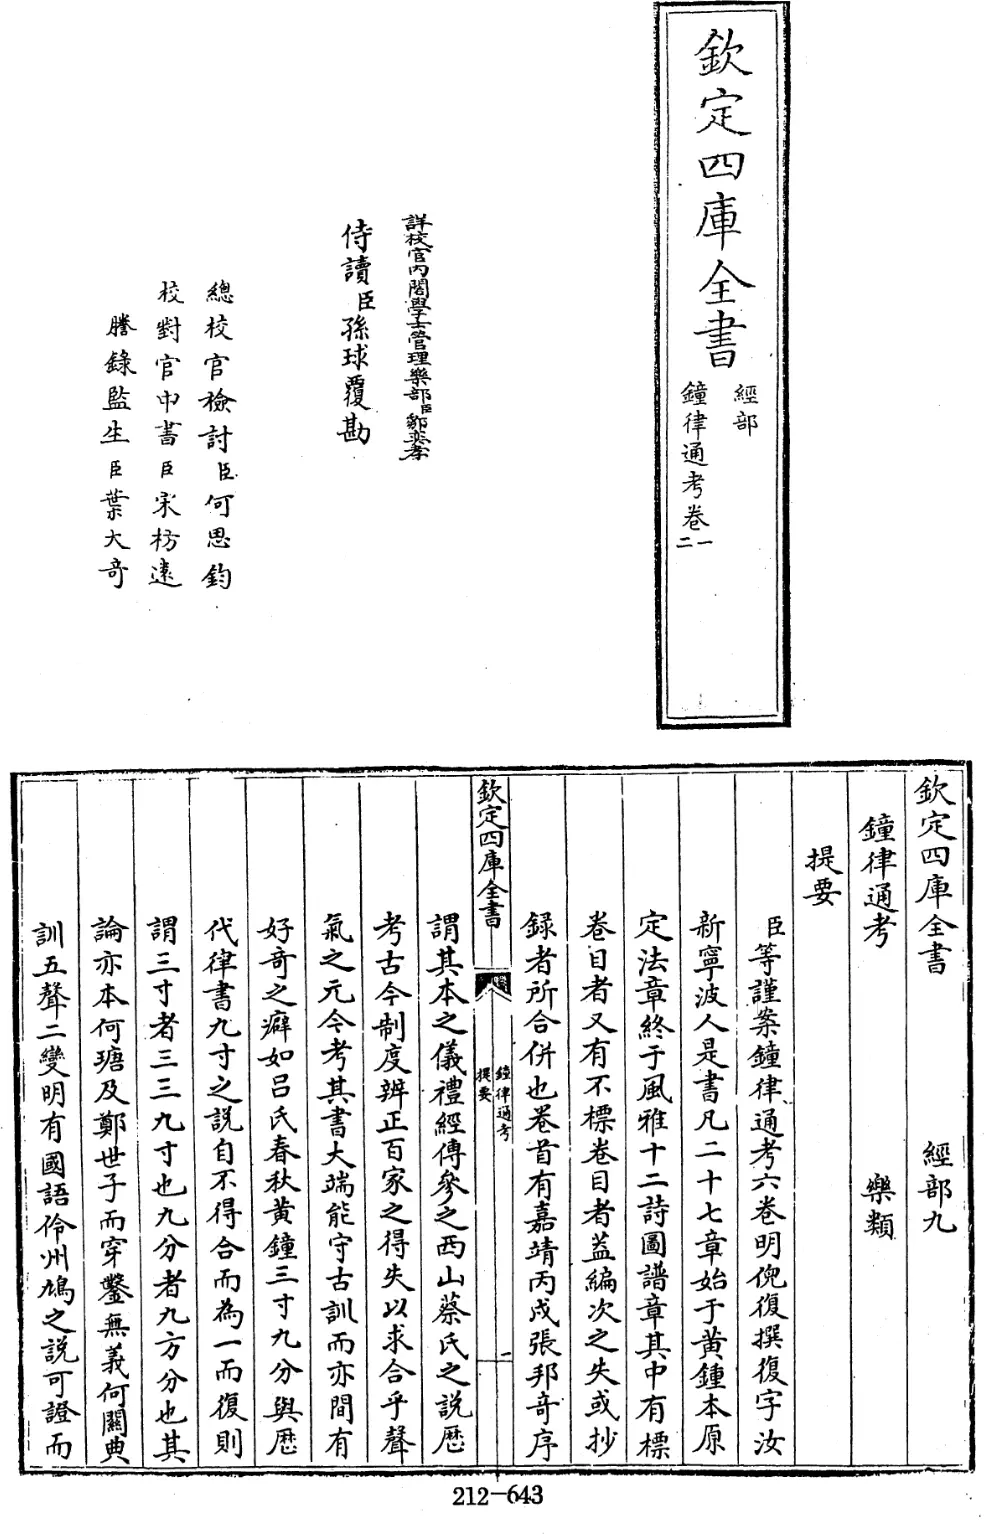 欽定四庫全書
經部
鐘律通考卷一
二
詳校官內閣學士管理樂部臣鄒奕孝
侍讀臣孫球覆勘
總校官檢討臣何思鈞
校對官中書臣宋枋遠
謄錄監生臣葉大奇
欽定四庫全書 經部九
鐘律通考 樂類
提要
臣等謹案鐘律通考六卷明倪復撰復字汝
新寧波人是書凡二十七章始于黃鍾本原
定法章終于風雅十二詩圖譜章其中有標
卷目者又有不標卷目者蓋編次之失或抄
録者所合併也卷首有嘉靖丙戌張邦奇序
欽定四庫全書
鐘律通考
提要
一
謂其本之儀禮經傳參之西山蔡氏之説歷
考古今制度辨正百家之得失以求合乎聲
氣之元今考其書大端能守古訓而亦間有
好奇之癖如吕氏春秋黃鐘三寸九分與歷
代律書九寸之説自不得合而為一而復則
謂三寸者三三九寸也九分者九方分也其
論亦本何瑭及鄭世子而穿鑿無義何關典
訓五聲二變明有國語伶州鳩之説可證而
212-643